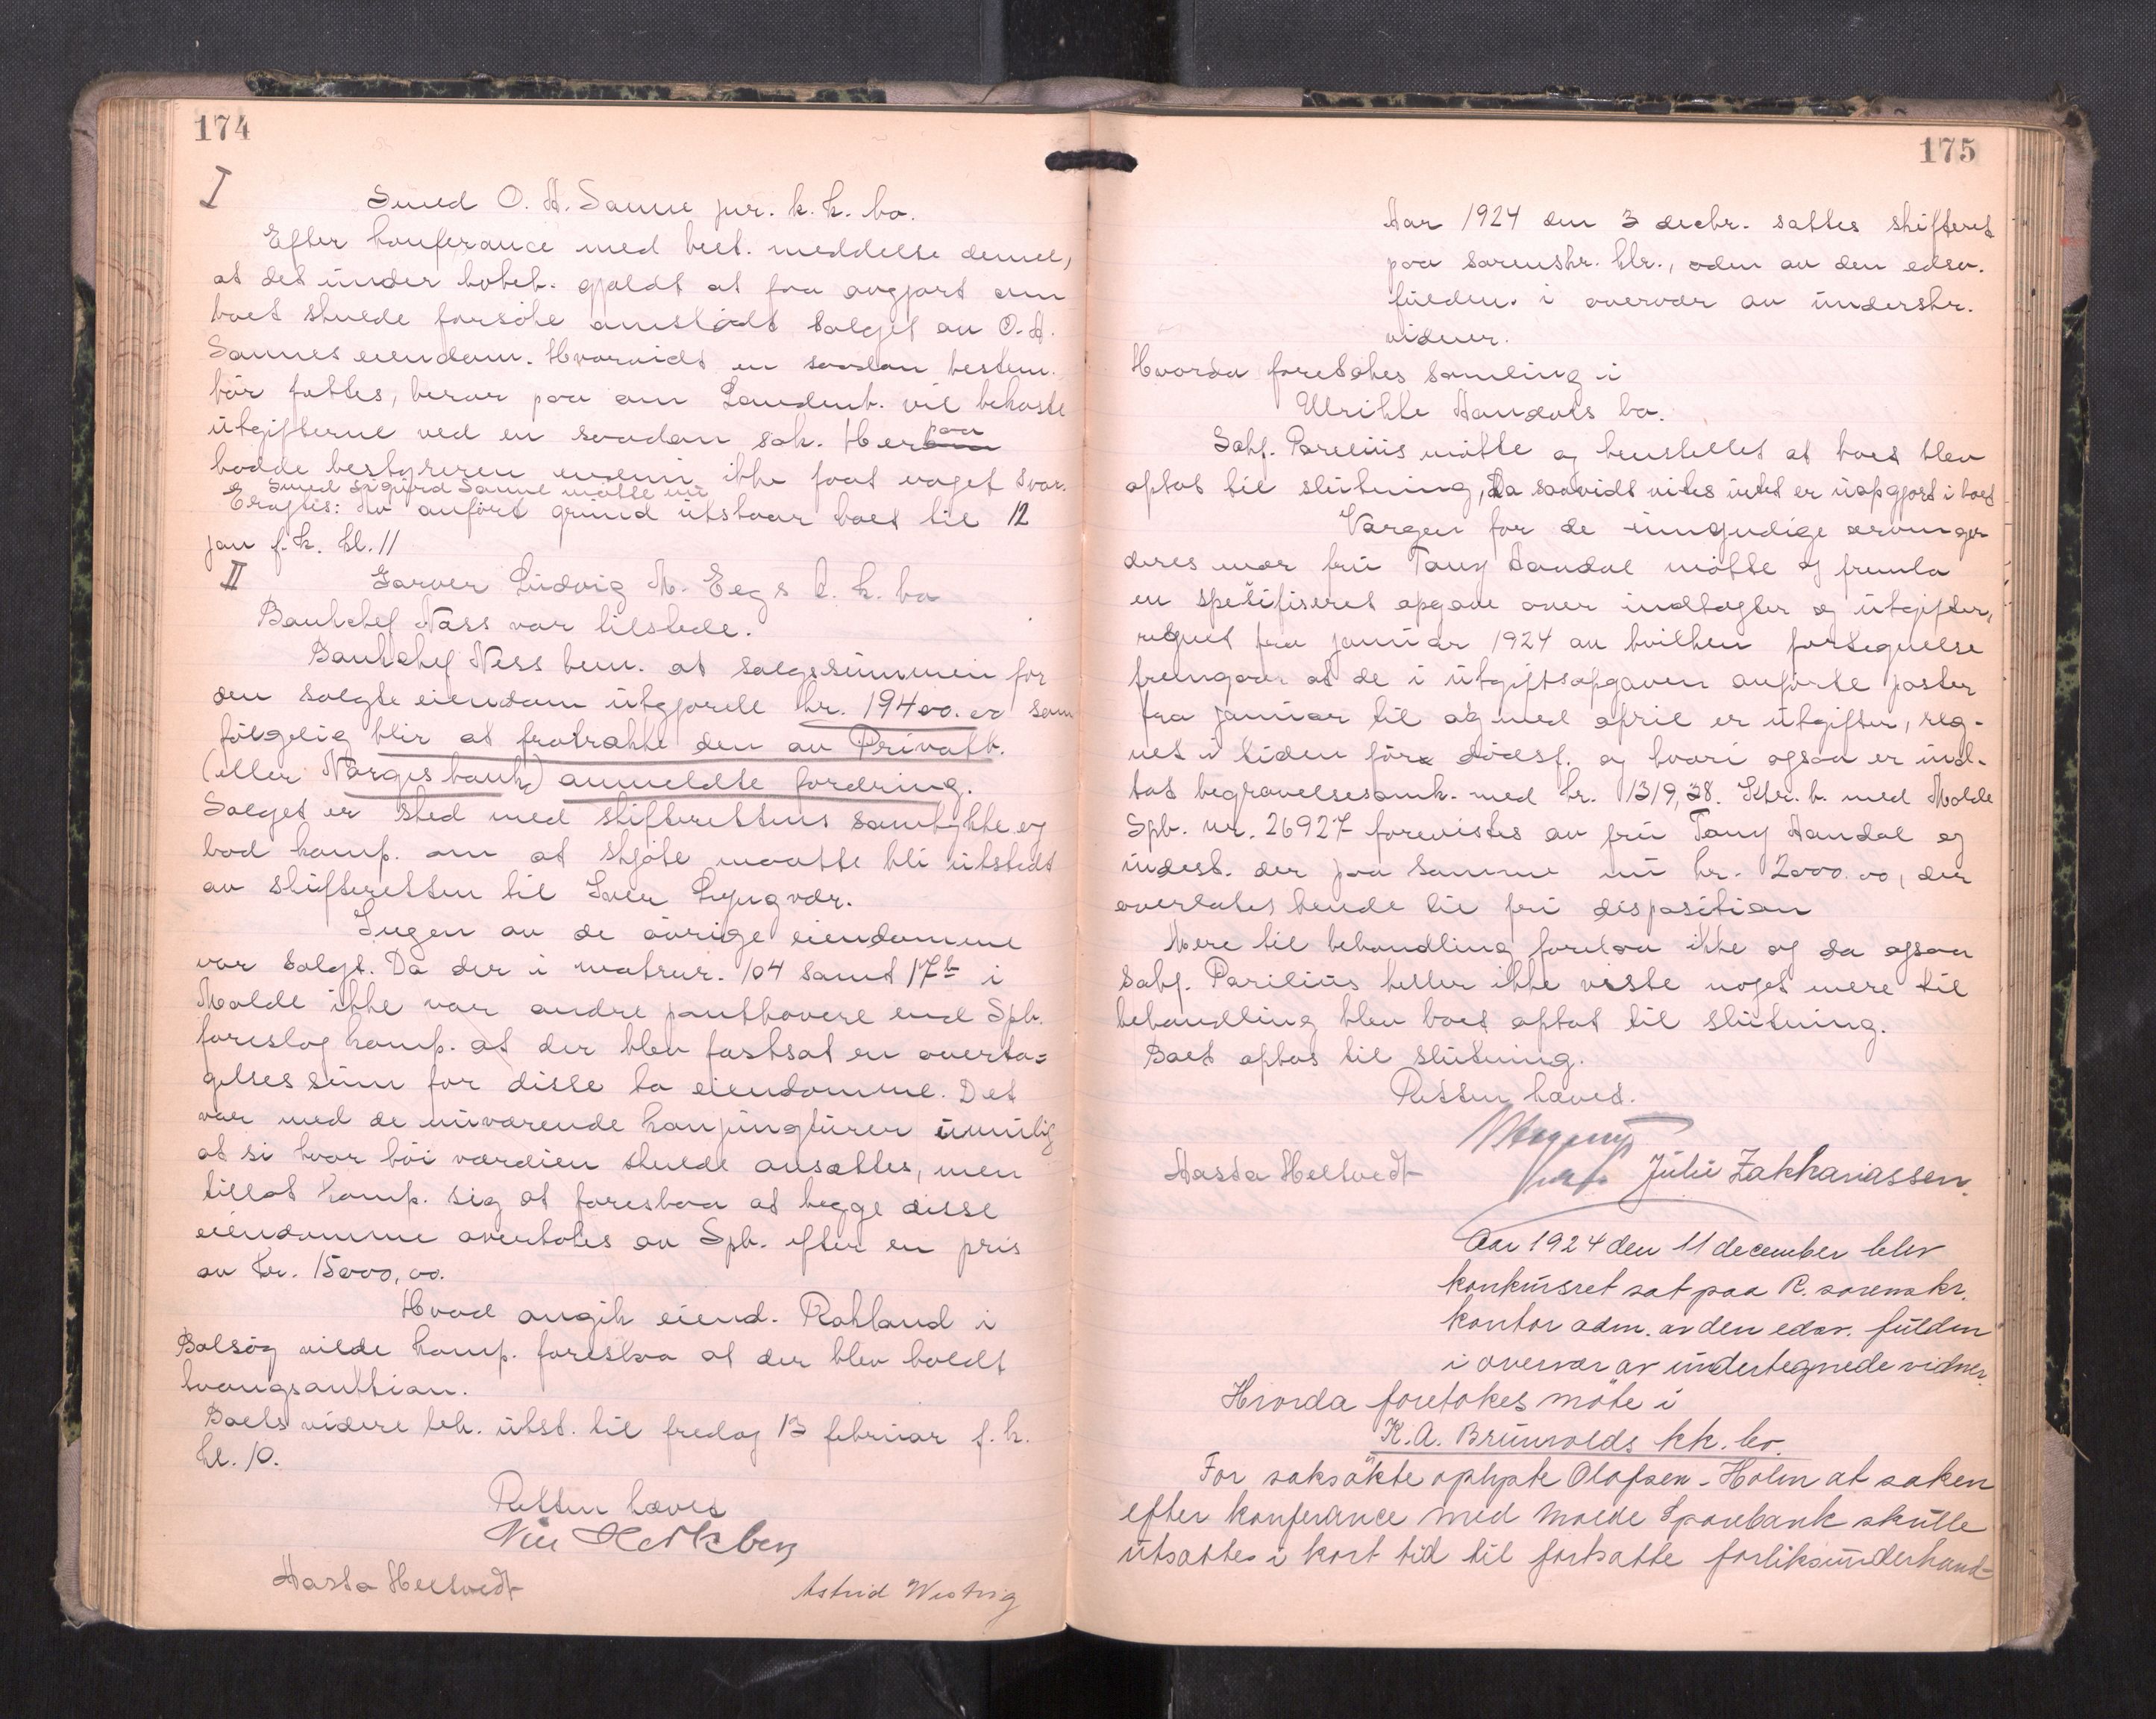 174
I
Smed O. A. Sanne jnr. k. k. bo.
Efter konferance med best. meddelte denne,
at det under bobeh. gjaldt at faa avgjort om
boet skulde forsöke omstödt salget av O. A.
Sannes eiendom. Hvorvidt en saadan bestem.
bör fattes, beror paa om Landmb. vil bekoste
utgifterne ved en saadan sak. Herpaa
hadde bestyreren endnu ikke faat noget svar.
Smed Sigurd Sanne mötte nu
Eragtis: Av anfört grund utstaar boet til 12
jan f. k. kl. 11
II
Garver Ludvig M. Eegs k. k. bo
Bankchef Näss var tilstede.
Bankchef Ness bem. at salgssummen for
den solgte eiendom utgjorde kr. 19400.00 som
fölgelig blir at fratrække den av Privatb.
(eller Norges bank) anmeldte fordring.
Salget er sked med skifterettens samtykke og
bad komp. om at skjöte maatte bli utstedt
av skifteretten til Iver Lyngvær.
Ingen av de övrige eiendomme
var solgt. Da der i matrnr. 104 samt 17b i
Molde ikke var andre panthavere end Spb.
foreslog komp. at der blev fastsat en overta=
gelses sum for disse to eiendomme. Det
var med de nuværende konjungturer umulig
at si hvor höi værdien skulde ansættes, men
tillot komp. sig at foreslaa at begge disse
eiendomme overtokes av Spb. efter en pris
av kr. 15000,00.
Hvad angik eiend. Röhland i
Bolsöy vilde komp. foreslaa at der blev holdt
tvangsauktion.
Boets videre beh. utst. til fredag 13 februar f. k.
kl. 10.
Retten hævet
Aasta Heltvedt
Astrid
175
Aar 1924 den 3 decbr. sattes skifteret
paa sorenskr. ktr., adm av den edsv.
fuldm. i overvær av underskr.
vidner.
Hvorda foretokes samling i
Ulrikke Aandals bo.
Sakf. Parelius mötte og henstillet at boet blev
optat til slutning, da saavidt vites intet er uopgjort i boet
Vergen for de umyndige arvinger
deres mor fru Tony Aandal mötte og fremla
en spetifiseret opgave over indtægter og utgifter,
regnet fra januar 1924 av hvilken fortegnelse
fremgaar at de i utgiftsopgaven anförte poster
fra januar til og med april er utgifter, reg-
net i tiden för dödsf. og hvori ogsaa er ind-
tat begravelsesomk. med kr. 1319,38. Ktr. b. med Molde
Spb. nr. 26927 forevistes av fru Tony Aandal og
indest. der paa samme nu kr. 2000.00, der
overlates hende til fri disposition
Mere til behandling forelaa ikke og da ogsaa
Sakf. Parilius heller ikke visste noget mere til
behandling blev boet optat til slutning.
Boet optas til slutning.
Retten hævet.
Aasta Heltvedt
Julie Zakhariassen.
Aar 1924 den 11 december blev
konkursret sat paa R. sorenskr.
kontor adm. av den edsv. fuldm
i overvær av undertegnede vidner.
Hvorda foretokes möte i
K. A. Brunvolds kk. bo.
For saksökte oplyste Olafsen-Holm at saken
efter konferance med Molde Sparebank skulle
utsættes i kort tid til fortsatte forliksunderhand-